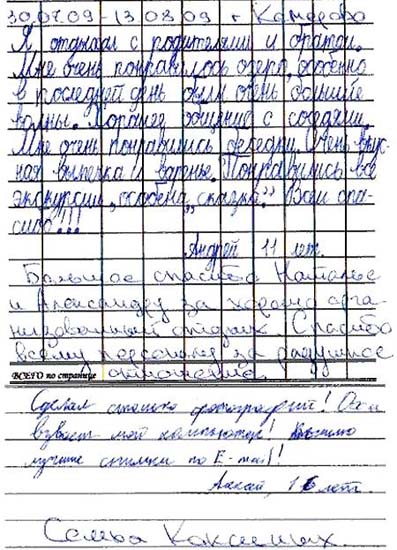 30.07.09 - 13.08.09 г. Кемерово
Я отдыхал с родителями и братом.
Мне очень понравилось озеро, особенно
в последний день были очень большие
волны. Хорошее общение с соседями.
Мне очень понравились беседки. Очень вкус-
ная выпечка и варенье. Понравились все
экскурсии, особена „сказка". Всем спа-
сибо!!!
Андрей 11 лет.
Большое спасибо Наталье
и Александру за хорошо орга-
низованный отдых. Спасибо
всему персоналу за радушное
отношение
ВСЕГО по странице
Сделал столько фотографий! Они
взорвут мой компьютер! Вышлю
лучшие снимки по E-mail!
16 лет.
Семья